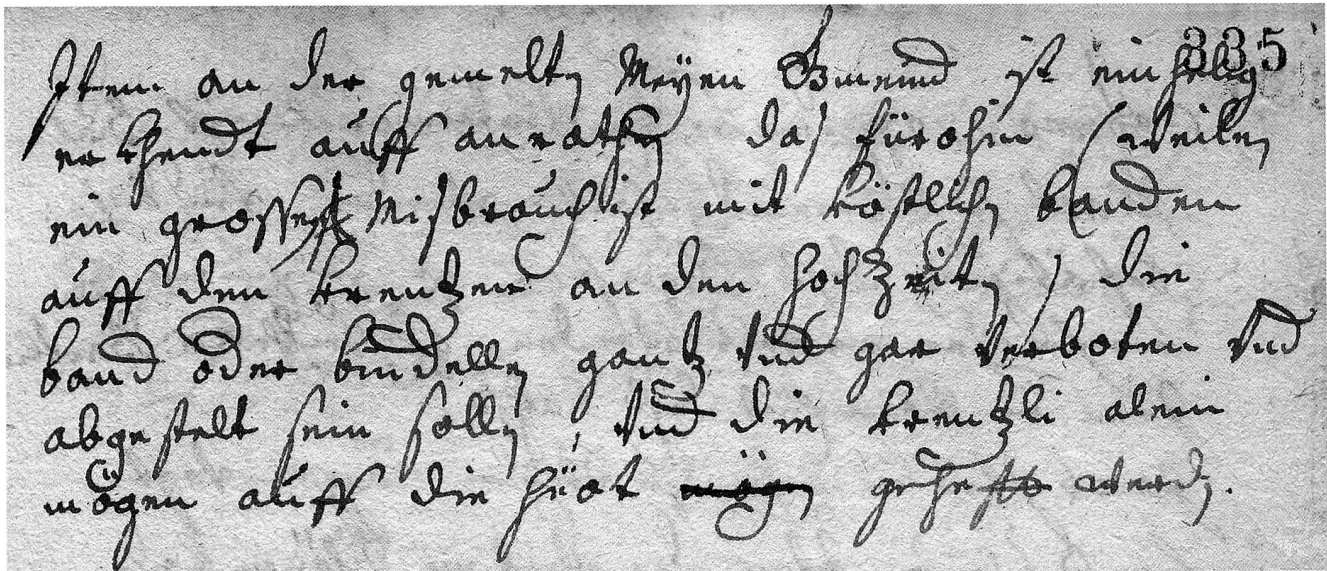 335
Item an der gemelten Meyen Gmeind ist einhelig
erkhendt auff anrathen das fürohin (weilen
ein grosser Misbrauch ist mit köstlichen banden
auff den krentzen an den hochzeiten) die
band oder bindellen gantz vnd gar verboten vnd
abgestelt sein sollen, vnd die krentzli alein
mögen auff die hüet mögen gehefft werden.